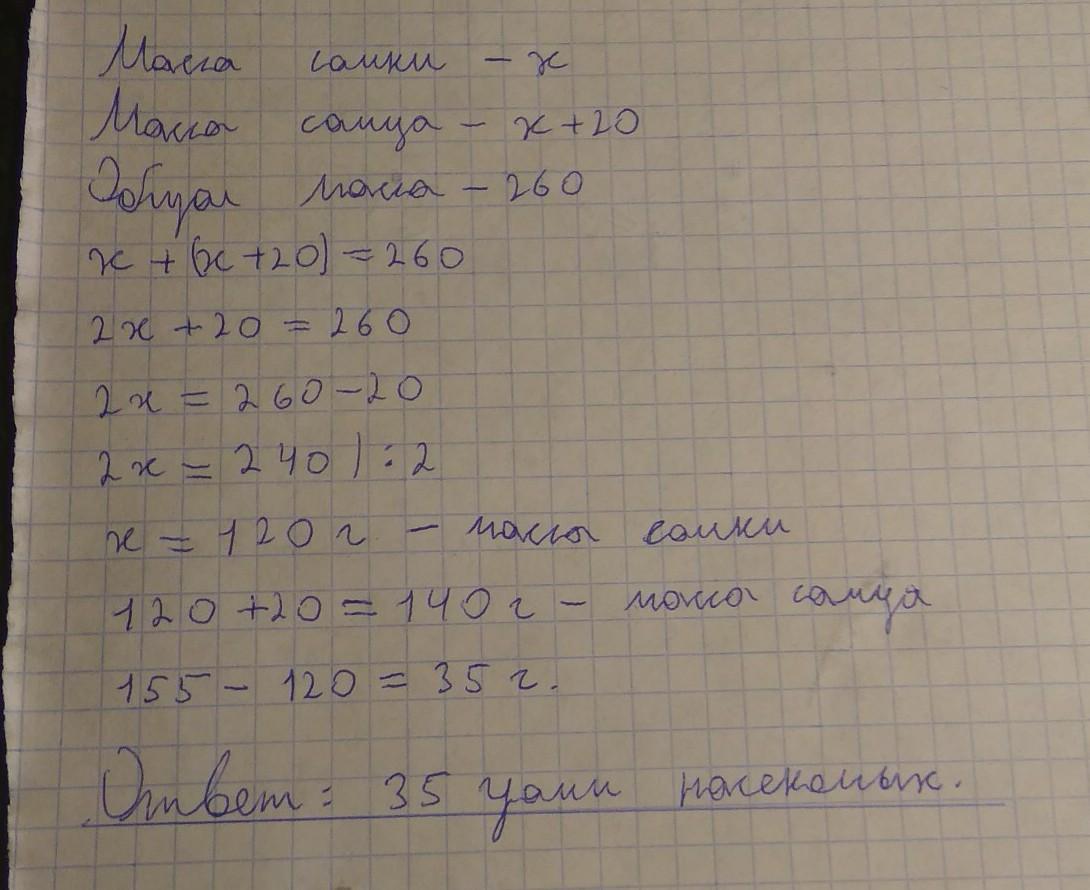 Масса самки - x
Масса самца - x+20
Общая масса - 260
x + (x+20) = 260
2x + 20 = 260
2x = 260-20
2x = 240 | :2
x = 120 г - массы самки
120 +20 = 140 г - масса самца
155 - 120 = 35 г.
Ответ: 35 грамм насекомых.